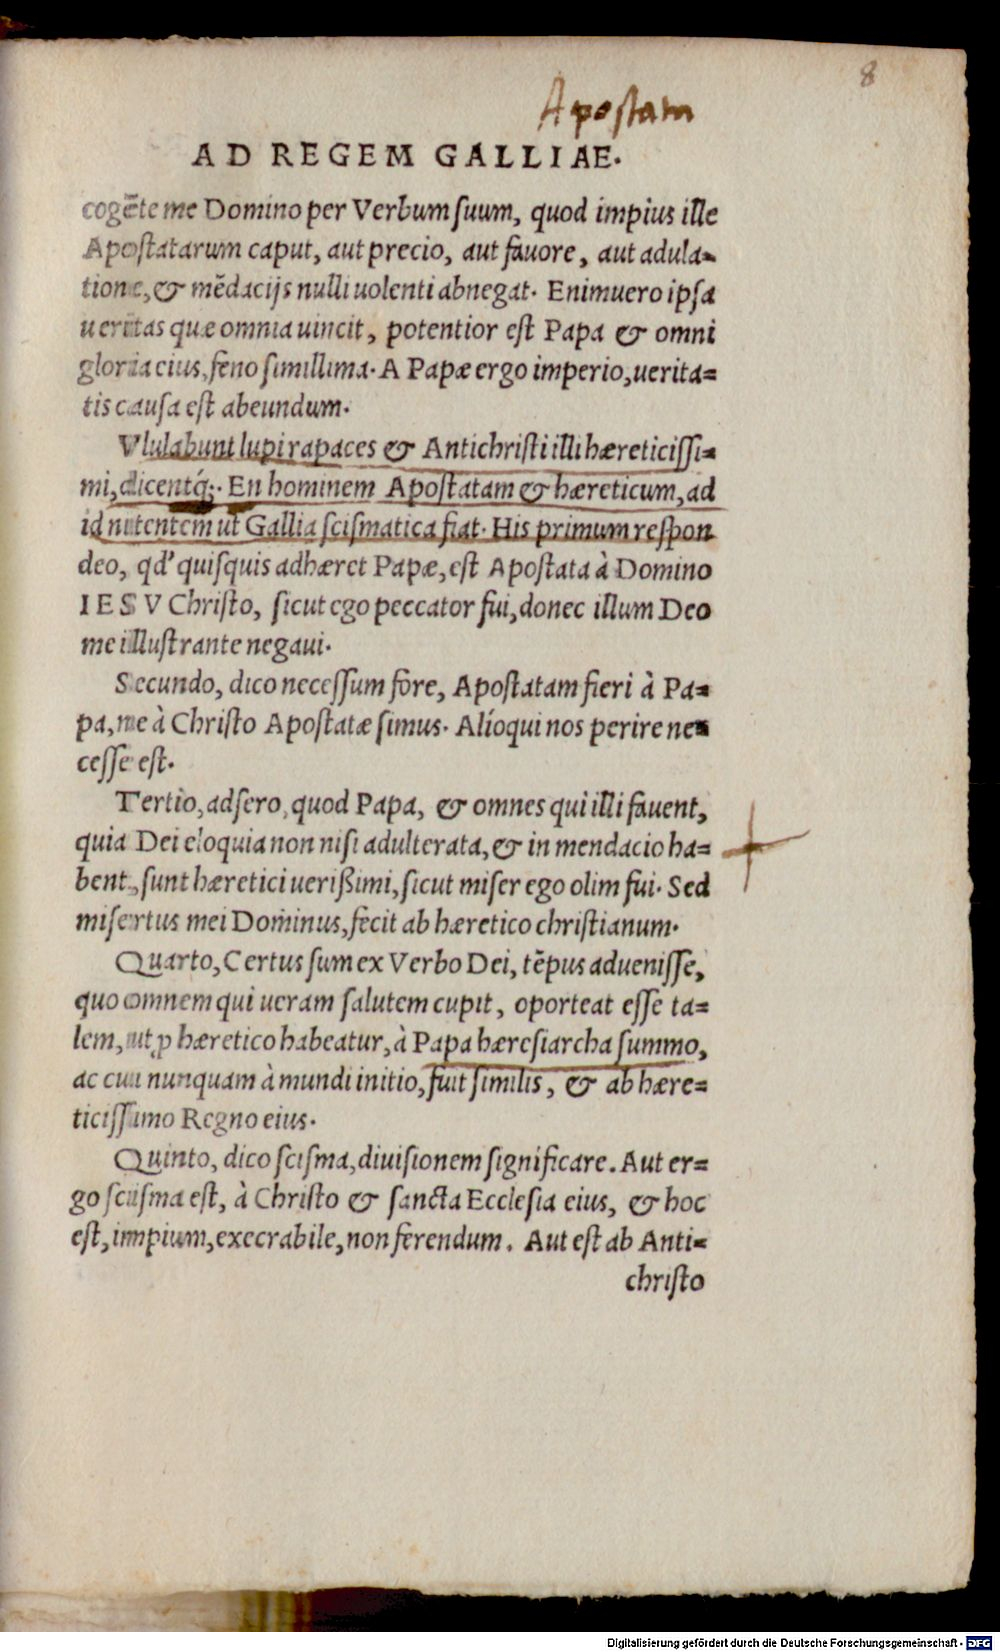 8
Apostam
AD REGEM GALLIAE.
cogēte me Domino per Verbum ſuum, quod impius ille
Apoſtatarum caput, aut precio, aut fauore, aut adula=
tione, & mēdacijs nulli uolenti abnegat. Enimuero ipſa
ueritas quæ omnia uincit, potentior eſt Papa & omni
gloria eius, feno ſimillima. A Papæ ergo imperio, uerita=
tis cauſa eſt abeundum.
Vlulabunt lupi rapaces & Antichriſti illi hæreticiſſi=
mi, dicentq́;. En hominem Apoſtatam & hæreticum, ad
id nitentem ut Gallia ſciſmatica fiat. His primum reſpon
deo, qd' quiſquis adhæret Papæ, eſt Apoſtata à Domino
IESV Chriſto, ſicut ego peccator fui, donec illum Deo
me illuſtrante negaui.
Secundo, dico neceſſum fore, Apoſtatam fieri à Pa=
pa, ne à Chriſto Apoſtatæ ſimus. Alíoqui nos perire ne=
ceſſe eſt.
Tertio, adſero, quod Papa, & omnes qui illi fauent,
quia Dei eloquia non niſi adulterata, & in mendacio ha=
bent, ſunt hæretici uerißimi, ſicut miſer ego olim fui. Sed
miſertus mei Dominus, fecit ab hæretico chriſtianum.
Quarto, Certus ſum ex Verbo Dei, tēpus adueniſſe,
quo omnem qui ueram ſalutem cupit, oporteat eſſe ta=
lem, ut ꝓ hæretico habeatur, à Papa hæreſiarcha ſummo,
ac cui nunquam à mundi initio, fuit ſimilis, & ab hære=
ticiſſimo Regno eius.
Quinto, dico ſciſma, diuiſionem ſignificare. Aut er=
go ſciſma eſt, à Chriſto & ſancta Eccleſia eius, & hoc
eſt, impium, execrabile, non ferendum. Aut eſt ab Anti=
chriſto
Digitalisierung gefördert durch die Deutsche Forschungsgemeinschaft - DFG